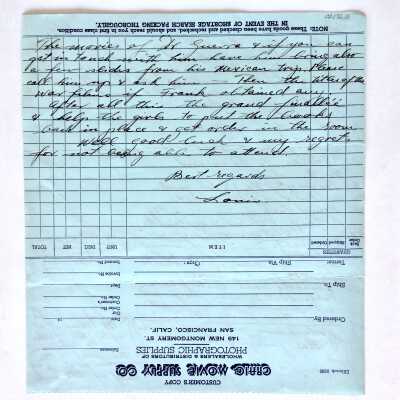 NOTE: These goods have been checked and rechecked, and should reach you in first class condition.
IN THE EVENT OF SHORTAGE SEARCH PACKING THOROUGHLY.
The movies of Dr Guerra & if you can
get in touch with him have him bring also
a few slides from his Mexican trip. Please
call him up & ask him. Then the titles of the
war films if Frank obtained any
After all this the grand finallie
& help the girls to put the books
back in place & get order in the room
Well good luck & my regrets
for not being able to attend.
Best regards
Louis
TOTAL
DISC.
NET
LIST
UNIT
ITEM
Back Ordered
Shipped
Ordered
QUANTITIES
Shipped Via
Chgs.:
Ship Via
Terms:
Invoice No.
Ordered By
Ship To:
Our Order No.
Customer's Order No.
Date
19
Salesman
SAN FRANCISCO, CALIF.
149 NEW MONTGOMERY ST.
PHOTOGRAPHIC SUPPLIES
WHOLESALERS & DISTRIBUTORS OF
CRAIG MOVIE SUPPLY CO
CUSTOMER'S COPY